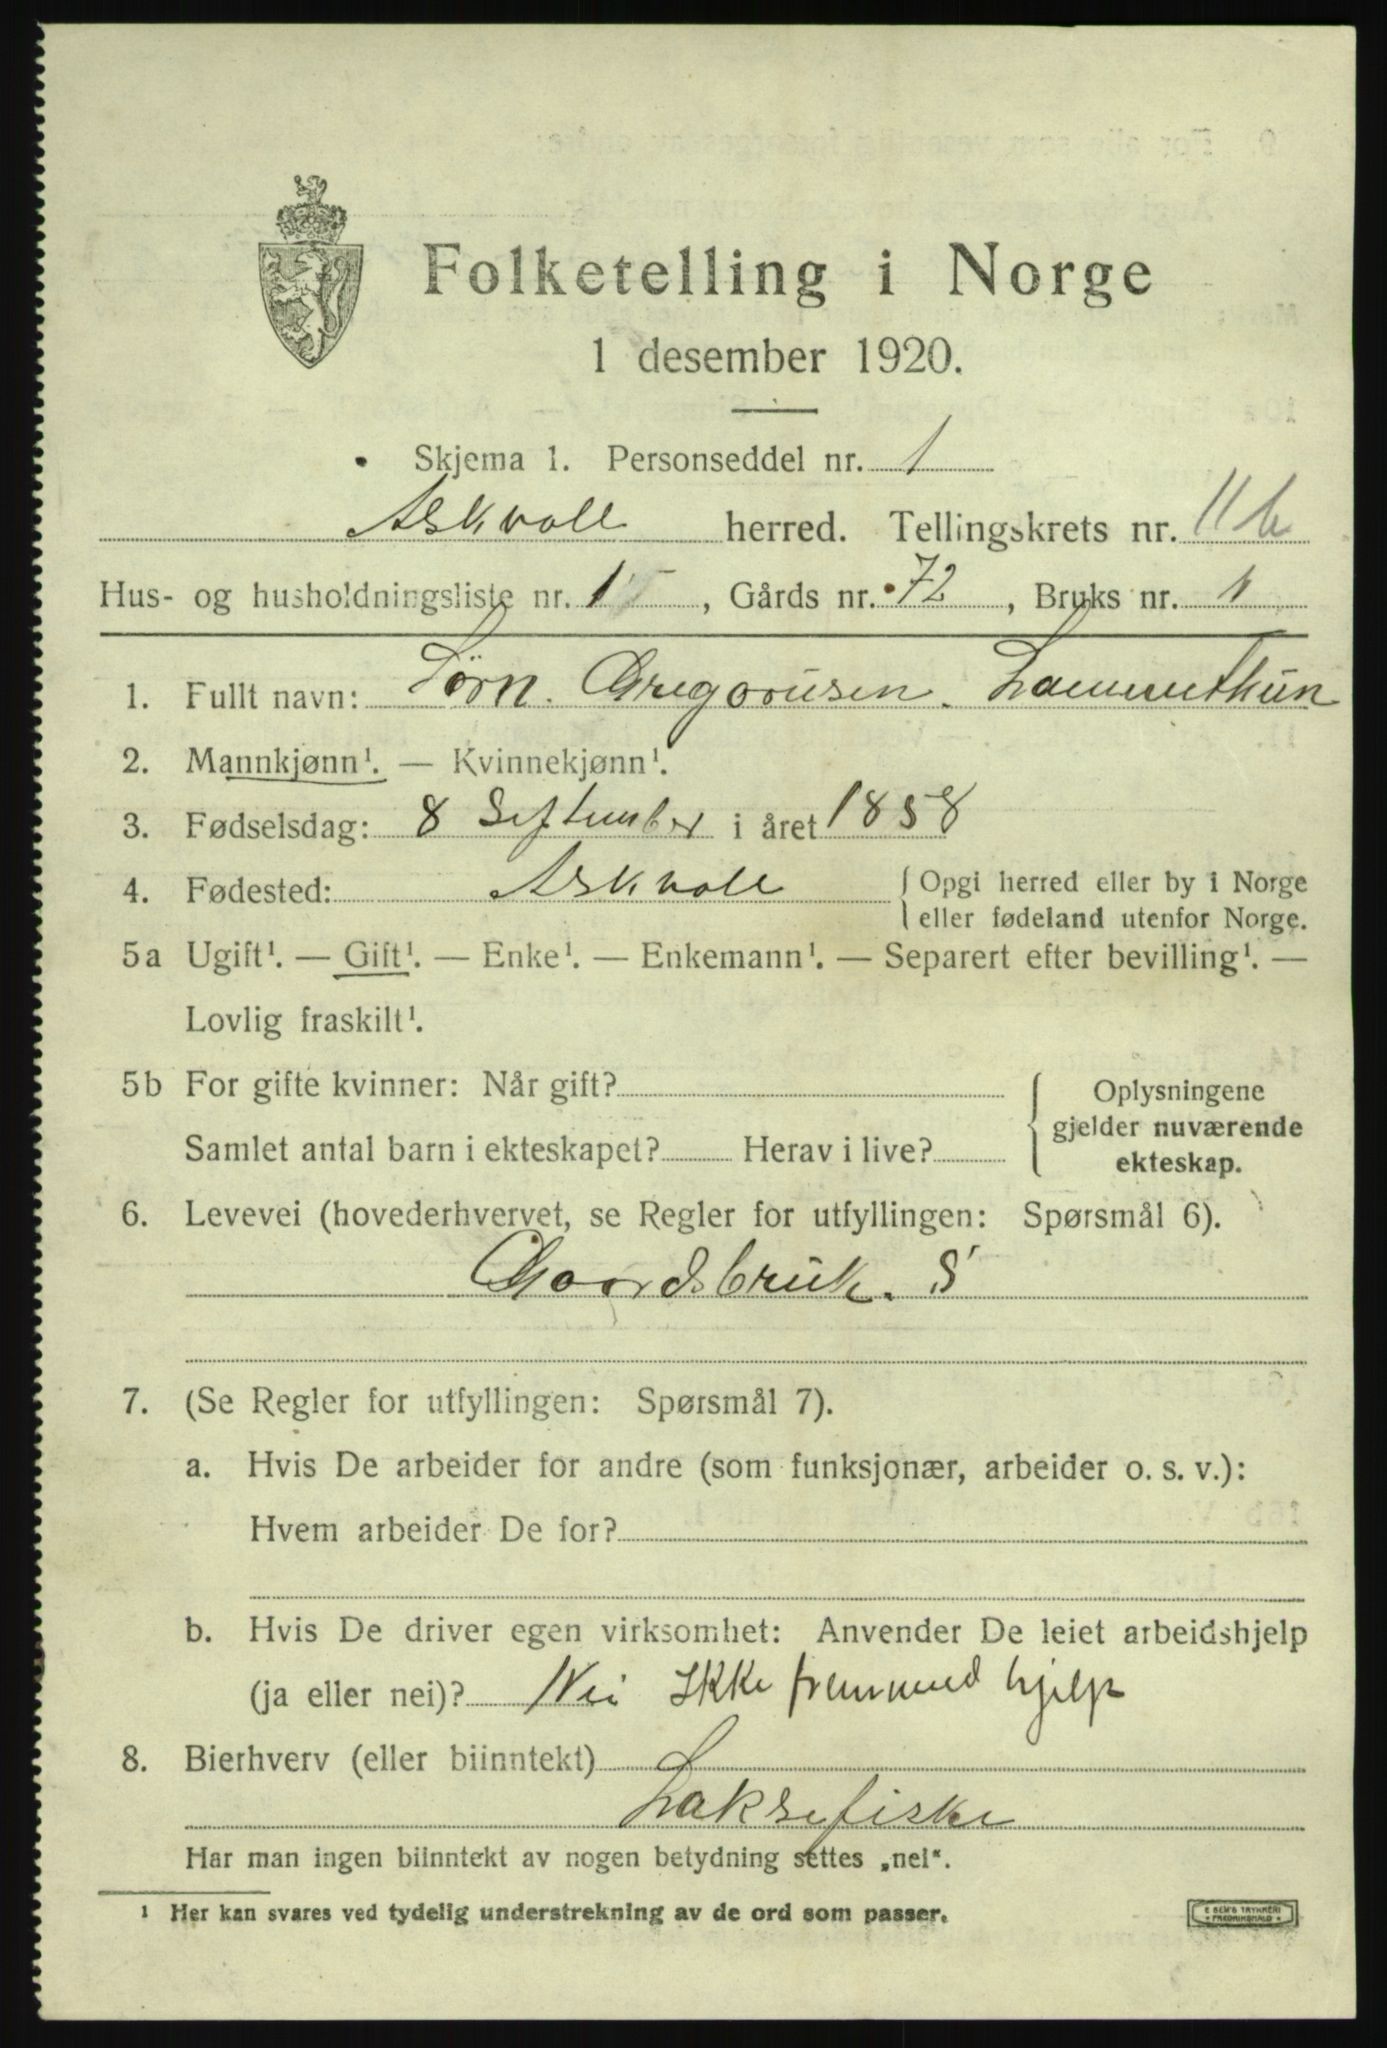 Folketelling i Norge
1 desember 1920.
Skjema 1. Personseddel nr. 1
Askvoll herred. Tellingskrets nr. 11b
Hus- og husholdningsliste nr. 1, Gårds nr. 72, Bruks nr. 1
1. Fullt navn: Jørn. Gregoriusen.
2. Mannkjønn¹. — Kvinnekjønn¹.
3. Fødselsdag: 8 September i året 1858
4. Fødested: Askvoll { Opgi herred eller by i Norge
eller fødeland utenfor Norge.
5a Ugift¹. — Gift¹. — Enke¹. — Enkemann¹. — Separert efter bevilling¹. —
Lovlig fraskilt¹.
5b For gifte kvinner: Når gift? { Oplysningene
gjelder nuværende
Samlet antal barn i ekteskapet? Herav i live?
ekteskap.
6. Levevei (hovederhvervet, se Regler for utfyllingen: Spørsmål 6).
Gaardsbruk. S
7. (Se Regler for utfyllingen: Spørsmål 7).
a. Hvis De arbeider for andre (som funksjonær, arbeider o. s. v.):
Hvem arbeider De for?
b. Hvis De driver egen virksomhet: Anvender De leiet arbeidshjelp
(ja eller nei)? Nei Ikke fremmed hjelp
8. Bierhverv (eller biinntekt)
Laksefiske
Har man ingen biinntekt av nogen betydning settes „nei“.
¹ Her kan svares ved tydelig understrekning av de ord som passer.
E SEM'S TRYKKERI
• FREDRIKSHALD •